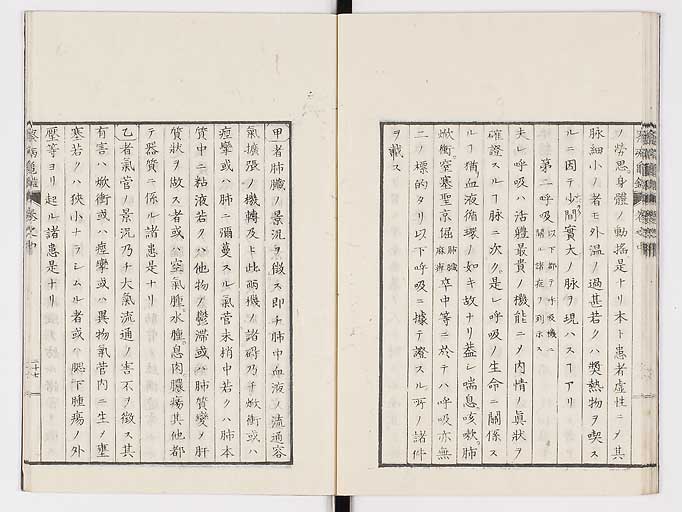 ノ勞思身體ノ動搖是ナリ木ト患者虚性ニメ其
脉細小ノ者モ外温ノ過甚若クハ奬熱物ヲ喫ス
ルニ因テ少間實大ノ脉ヲ現ハスヿアリ
第二呼吸 以下都テ呼吸機ニ關ル諸症ヲ列示ス
夫レ呼吸ハ活軆最貴ノ機能ニメ内情ノ眞状ヲ
確證スルヿ脉ニ次ク是レ呼吸ノ生命ニ關係ス
ルヿ猶血液循環ノ如キ故ナリ蓋シ喘息咳嗽肺
焮衝窒塞聖京倔 肺臟麻痺 卒中等ニ於テハ呼吸亦無
二ノ標的タリ以下呼吸ニ據テ證スル所ノ諸件
ヲ載ス
甲者肺臟ノ景況ヲ徴ス即チ肺中血液ノ流通容
氣擴張ノ機轉及ト此兩機ノ諸碍乃チ焮衝或ハ
痙攣或ハ肺ニ彌蔓スル氣菅末梢中若クハ肺本
質中ニ粘液若クハ他物ノ鬱滯或ハ肺質變メ肝
質状ヲ做ス者或ハ空氣腫水腫息肉膿瘍其他都
テ器質ニ係ル諸患是ナリ
乙者氣菅ノ景況乃チ大氣流通ノ害不ヲ徴ス其
有害ハ焮衝或ハ痙攣或ハ異物氣菅内ニ生ノ壅
塞若クハ狹小ナラシムル者或ハ腮下腫瘍ノ外
壓等ヨリ起ル諸患是ナリ
二十七